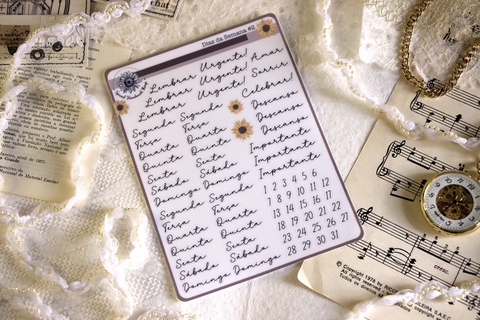 Dias da Semana #2
Lembrar Urgente! Amar
Lembrar Urgente! Sorrir
Lembrar Urgente! Celebrar!
Segunda Segunda Descanso
Terça Terça Descanso
Quarta Quarta Descanso
Quinta Quinta Importante
Sexta Sexta Importante
Sábado Sábado Importante
Domingo Domingo Importante
Segunda Segunda 1 2 3 4 5 6
Terça Terça 7 8 9 10 11 12
Quarta Quarta 13 14 15 16 17
Quinta Quinta 18 19 20 21 22
Sexta Sexta 23 24 25 26 27
Sábado Sábado 28 29 30 31
Domingo Domingo
abril de 1971
Copyright © 1978 by